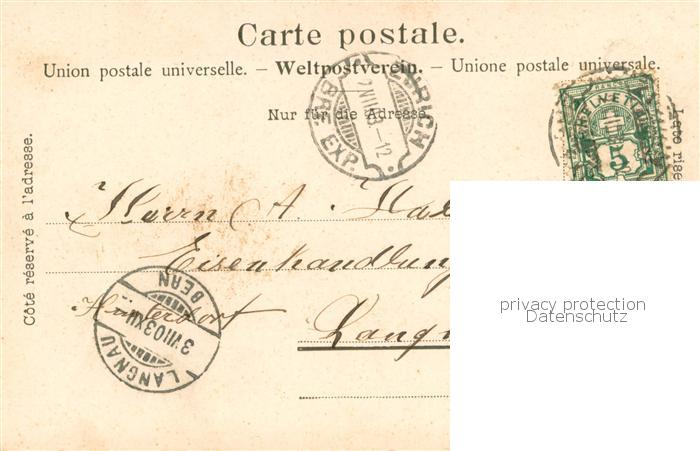 Carte postale.
Union postale universelle. – Weltpostverein. – Unione postale universale.
Nur für die Adresse.
Côté réservé à l'adresse.
Lato rise
ZÜRICH
BRF. EXP.
5
Herrn A.
Eisenhandlung
Langn
LANGNAU
BERN
3 VII 03 XII
privacy protection
Datenschutz